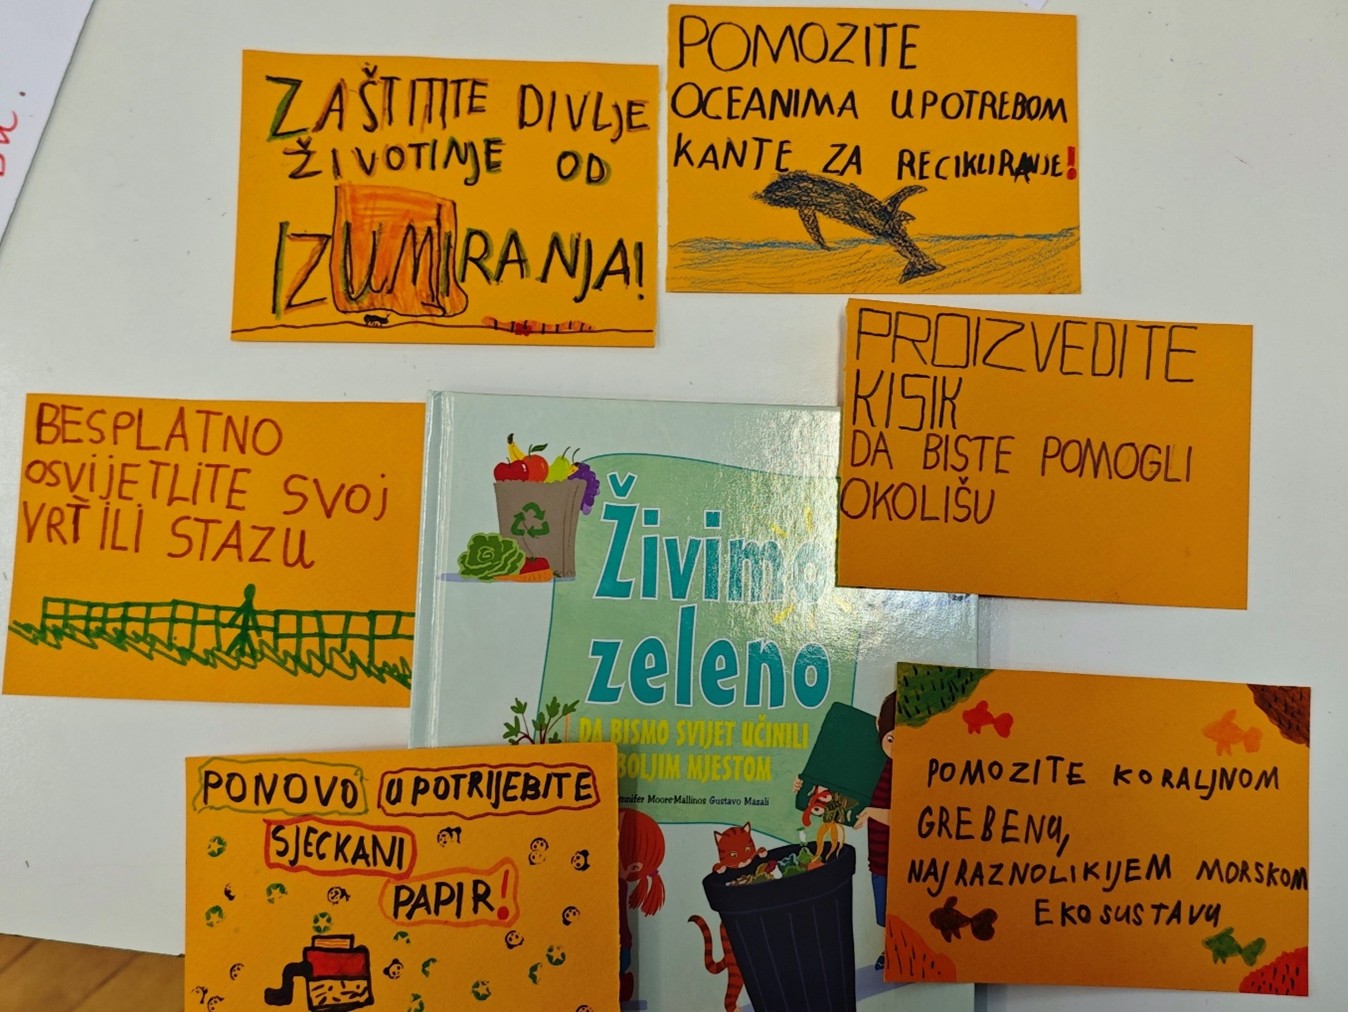 ZAŠTITITE DIVLJE
ŽIVOTINJE OD
IZUMIRANJA!
POMOZITE
OCEANIMA UPOTREBOM
KANTE ZA RECIKLIRANJE!
PROIZVEDITE
KISIK
DA BISTE POMOGLI
OKOLIŠU
BESPLATNO
OSVIJETLITE SVOJ
VRT ILI STAZU
Živimo
zeleno
DA BISMO SVIJET UČINILI
BOLJIM MJESTOM
Moore-Mallinos Gustavo Mazali
PONOVO UPOTRIJEBITE
SJECKANI
PAPIR!
POMOZITE KORALJNOM
GREBENU,
NAJRAZNOLIKIJEM MORSKOM
EKOSUSTAVU